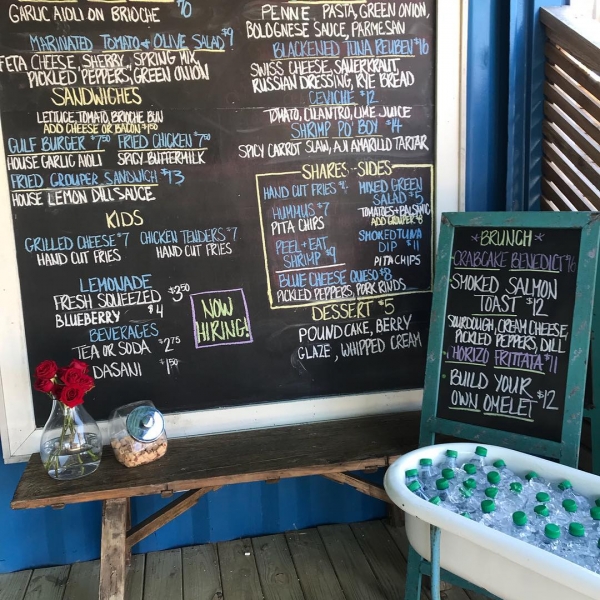 GARLIC AIOLI ON BRIOCHE
MARINATED TOMATO & OLIVE SALAD $9
FETA CHEESE, SHERRY, SPRING MIX,
PICKLED PEPPERS, GREEN ONION
SANDWICHES
LETTUCE, TOMATO, BRIOCHE BUN
ADD CHEESE OR BACON $1.50
GULF BURGER $7.50 FRIED CHICKEN $7.50
HOUSE GARLIC AIOLI SPICY BUTTERMILK
FRIED GROUPER SANDWICH $13
HOUSE LEMON DILL SAUCE
KIDS
GRILLED CHEESE $7 CHICKEN TENDERS $7
HAND CUT FRIES HAND CUT FRIES
LEMONADE
FRESH SQUEEZED $3.50
BLUEBERRY $4
BEVERAGES
TEA OR SODA $2.75
DASANI $1.50
NOW
HIRING!
PENNE PASTA, GREEN ONION,
BOLOGNESE SAUCE, PARMESAN
BLACKENED TUNA REUBEN $16
SWISS CHEESE, SAUERKRAUT,
RUSSIAN DRESSING, RYE BREAD
CEVICHE $12
TOMATO, CILANTRO, LIME JUICE
SHRIMP PO' BOY $14
SPICY CARROT SLAW, AJI AMARILLO TARTAR
SHARES - SIDES
HAND CUT FRIES
HUMMUS $7
PITA CHIPS
PEEL + EAT
SHRIMP $9
MIXED GREEN
SALAD $5
TOMATOES + BALSAMIC
ADD GROUPER
SMOKED TUNA
DIP $11
PITA CHIPS
BLUE CHEESE QUESO $8
PICKLED PEPPERS, PORK RINDS
DESSERT $5
POUND CAKE, BERRY
GLAZE, WHIPPED CREAM
*BRUNCH*
CRABCAKE BENEDICT
SMOKED SALMON
TOAST $12
SOURDOUGH, CREAM CHEESE,
PICKLED PEPPERS, DILL
HORIZO FRITTATA $11
BUILD YOUR
OWN OMELET $12